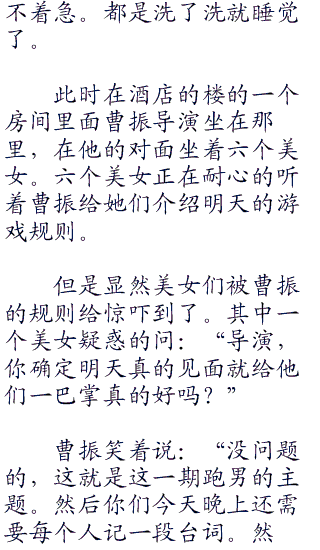 不着急。都是洗了洗就睡觉
了。
此时在酒店的楼的一个
房间里面曹振导演坐在那
里，在他的对面坐着六个美
女。六个美女正在耐心的听
着曹振给她们介绍明天的游
戏规则。
但是显然美女们被曹振
的规则给惊吓到了。其中一
个美女疑惑的问：“导演，
你确定明天真的见面就给他
们一巴掌真的好吗？”
曹振笑着说：“没问题
的，这就是这一期跑男的主
题。然后你们今天晚上还需
要每个人记一段台词。然